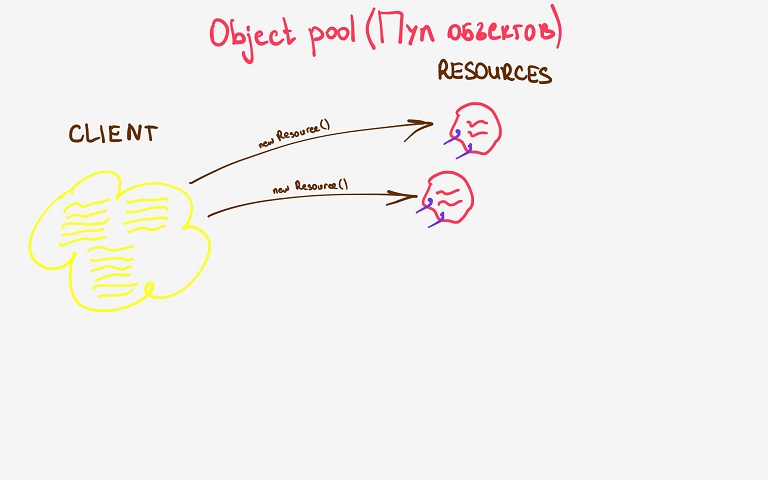 Object pool (Пул объектов)
RESOURCES
CLIENT
new Resource()
new Resource()